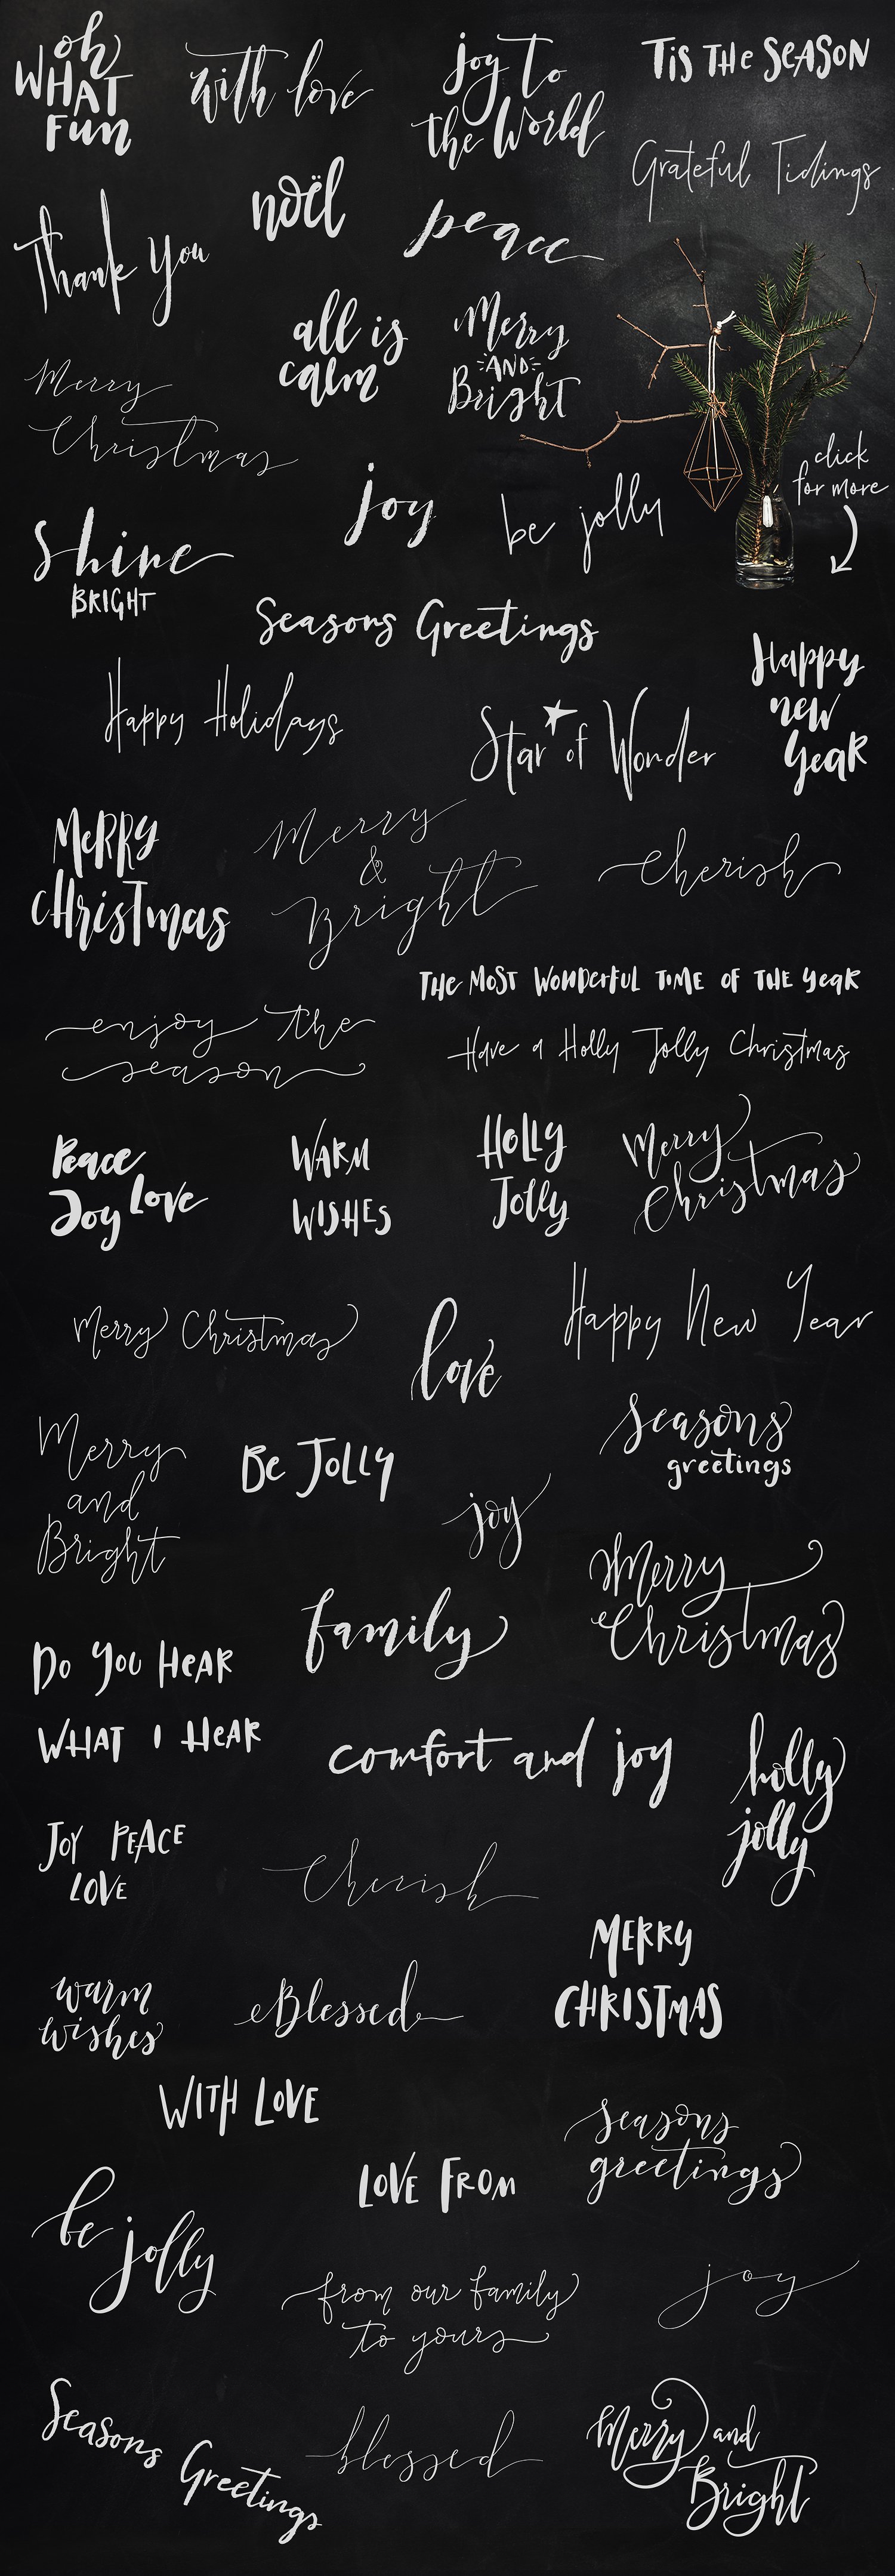 oh
WHAT
Fun
with love
joy to
the World
Tis THe SeASON
Grateful Tidings
noël
Thank You
peace
all is
calm
Merry
AND
Bright
Merry
Christmas
click
for more
joy
be jolly
Shine
BRIGHT
Seasons Greetings
Happy
new
YeaR
Happy Holidays
Star of Wonder
MeRRy
CHrisTmas
Merry
&
Bright
Cherish
THe MOST WONDerFUL TIME OF THE YeaR
enjoy the
season
Have a Holly Jolly Christmas
Peace
Joy Love
WARM
WISHES
HOLLY
JOLLY
Merry
Christmas
Merry Christmas
love
Happy New Year
Seasons
greetings
Merry
and
Bright
Be JOLLY
joy
Merry
Christmas
family
Do You HeAR
WHAT I HeAR
comfort and joy
holly
jolly
JOY PEACE
LOVE
Cherish
MERRY
CHRISTMAS
warm
wishes
Blessed
WITH LOVE
seasons
greetings
LOVE FROM
be
jolly
from our family
to yours
joy
Seasons
Greetings
blessed
Merry and
Bright